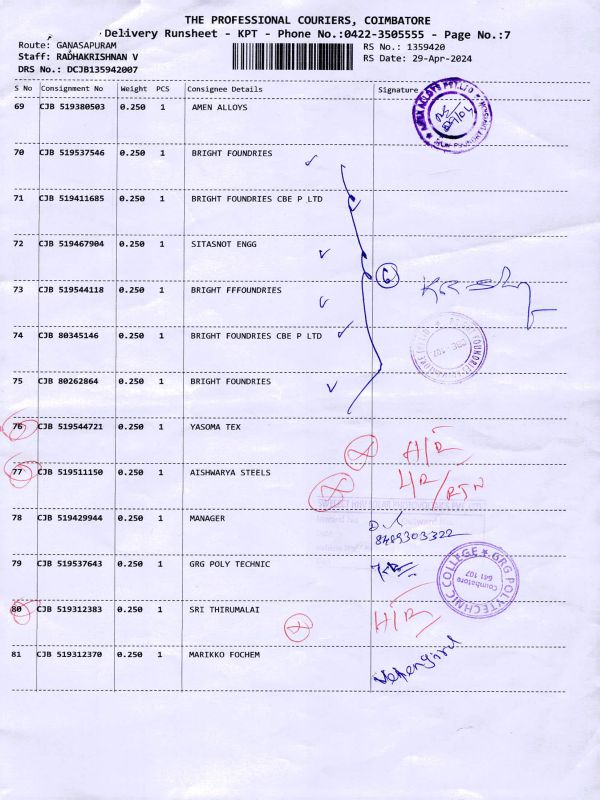 THE PROFESSIONAL COURIERS, COIMBATORE
Delivery Runsheet - KPT - Phone No.:0422-3505555 - Page No.:7
Route: GANASAPURAM RS No.: 1359420
Staff: RADHAKRISHNAN V RS Date: 29-Apr-2024
DRS No.: DCJB135942007
S No Consignment No Weight PCS Consignee Details Signature
69 CJB 519380503 0.250 1 AMEN ALLOYS
70 CJB 519537546 0.250 1 BRIGHT FOUNDRIES
71 CJB 519411685 0.250 1 BRIGHT FOUNDRIES CBE P LTD
72 CJB 519467904 0.250 1 SITASNOT ENGG
6
73 CJB 519544118 0.250 1 BRIGHT FFFOUNDRIES
74 CJB 80345146 0.250 1 BRIGHT FOUNDRIES CBE P LTD
75 CJB 80262864 0.250 1 BRIGHT FOUNDRIES
76 CJB 519544721 0.250 1 YASOMA TEX H/R
77 CJB 519511150 0.250 1 AISHWARYA STEELS
78 CJB 519429944 0.250 1 MANAGER
8489303322
79 CJB 519537643 0.250 1 GRG POLY TECHNIC
GRG POLYTECHNIC COLLEGE
Coimbatore
641 107
80 CJB 519312383 0.250 1 SRI THIRUMALAI H/R
81 CJB 519312370 0.250 1 MARIKKO FOCHEM